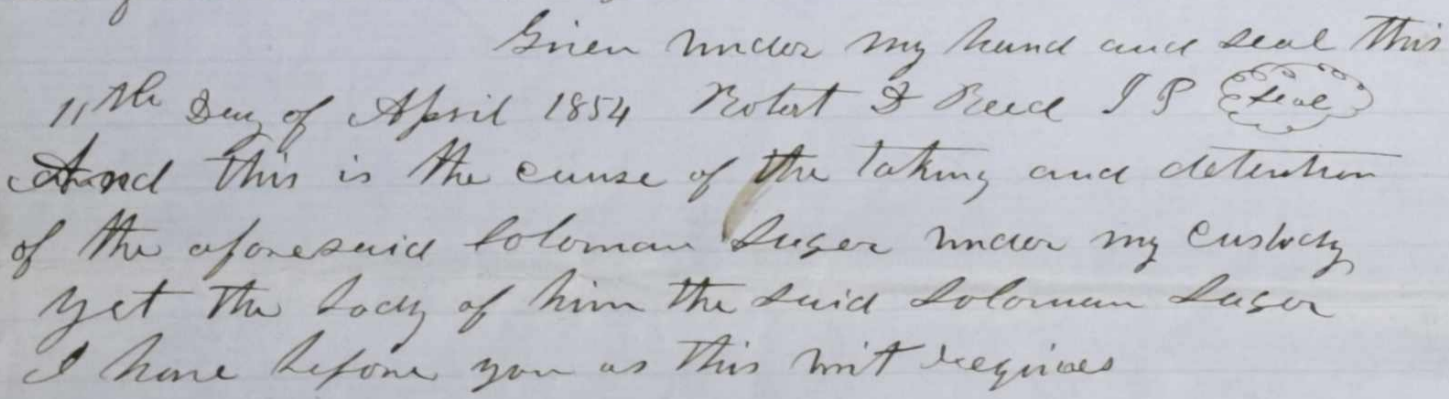 Given under my hand and seal this
11th Day of April 1854 Robert D Reed J P Seal
And this is the cause of the taking and detention
of the aforesaid Soloman Sager under my custody
yet the body of him the said Soloman Sager
I have before you as this writ requires